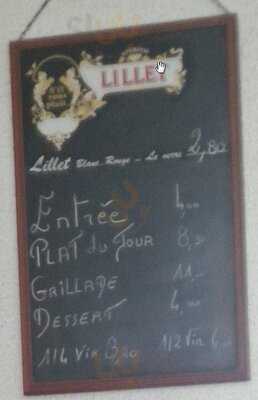 LILLET
Lillet Blanc Rouge - Le verre 2,80
Entrée 4,00
PLAT du Jour 8,50
GRILLADE 11,-
DESSERT 4,00
1/4 Vin 3,20 1/2 Vin 6,-